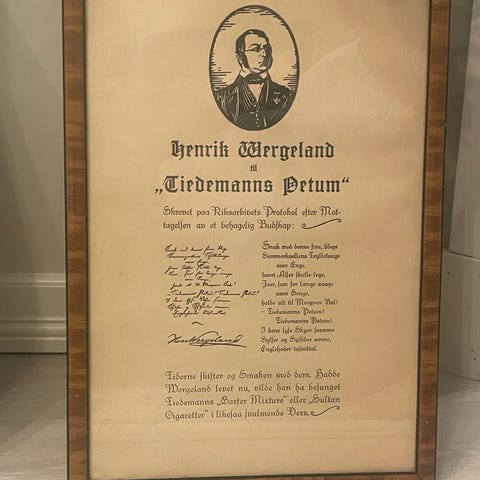 Henrik Wergeland
til
„Tiedemanns Petum“
Skrevet paa Riksarkivets Protokol efter Mot-
tagelsen av et behagelig Budskap:
Snak med denne fine, blege
Sommerkvellens Trylletaage
over Enge,
hvori Alfer skulle lege,
Feer, som for længe vaage
over Senge,
holde alt til Morgnen Bal!
– Tiedemanns Petum!
Tiedemanns Petum!
I dens lyse Skyer svømme
Sylfer og Sylfider ømme,
Englehoder tusindtal.
Henr Wergeland
Tiderne skifter og Smaken med dem. Hadde
Wergeland levet nu, vilde han ha besunget
Tiedemanns „Garter Mixture“ eller „Sultan
Cigaretter“ i likesaa svulmende Vers.